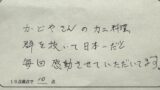 かどやさんのカニ料理
群を抜いて日本一だと
毎回感動させていただいてます。
10点満点で 10 点